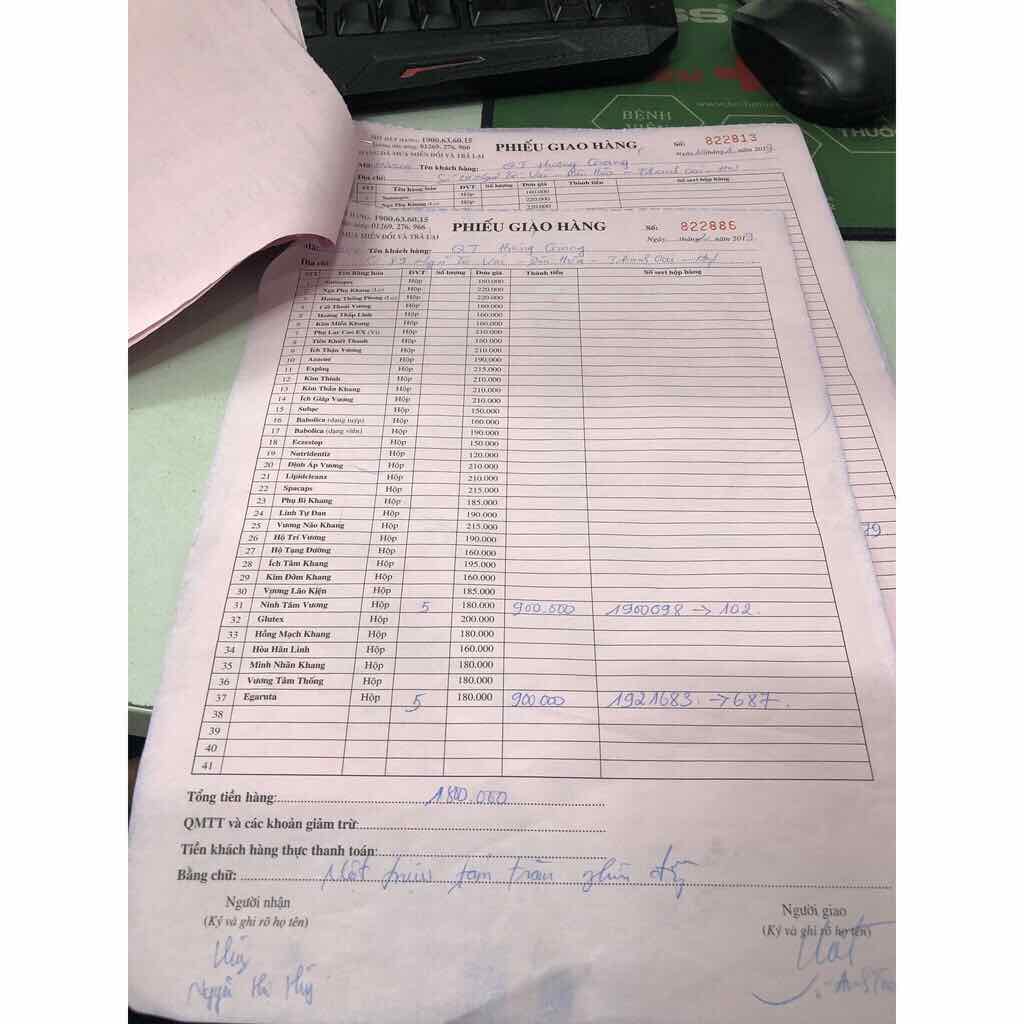 1900.63.60.15
01269. 276, 966
HÀNG ĐÃ MUA MIỄN ĐỔI VÀ TRẢ LẠI
PHIẾU GIAO HÀNG
Số: 822813
năm 2019
Tên khách hàng: QT Hương Giang
Địa chỉ:
STT Tên hàng hóa ĐVT Số lượng Đơn giá Thành tiền Số seri hộp hàng
Hộp 160.000
Ngã Phụ Khang Hộp 220.000
220.000
BỆNH VIỆN
THUỐ
HÀNG: 1900.63.60.15
01269. 276, 966
MUA MIỄN ĐỔI VÀ TRẢ LẠI
PHIẾU GIAO HÀNG
Số: 822886
Ngày tháng năm 2019
Tên khách hàng: QT Hương Giang
Địa chỉ:
STT Tên hàng hóa ĐVT Số lượng Đơn giá Thành tiền Số seri hộp hàng
Hộp 160.000
Nga Phụ Khang (Lọ) Hộp 220.000
3 Hoàng Thống Phong (Lọ) Hộp 220.000
4 Cốt Thoái Vương Hộp 160.000
5 Hoàng Thấp Linh Hộp 160.000
6 Kim Miễn Khang Hộp 160.000
7 Phụ Lạc Cao EX (Vỉ) Hộp 210.000
8 Tiêu Khiết Thanh Hộp 160.000
9 Ích Thận Vương Hộp 210.000
10 Azacur Hộp 190.000
11 Explaq Hộp 215.000
12 Kim Thính Hộp 210.000
13 Kim Thần Khang Hộp 210.000
14 Ích Giáp Vương Hộp 210.000
15 Subạc Hộp 150.000
16 Babolica (dạng tuýp) Hộp 160.000
17 Babolica (dạng viên) Hộp 190.000
18 Eczestop Hộp 150.000
19 Nutridentiz Hộp 120.000
20 Định Áp Vương Hộp 210.000
21 Lipidcleanz Hộp 210.000
22 Spacaps Hộp 215.000
23 Phụ Bì Khang Hộp 185.000
24 Linh Tự Đan Hộp 190.000
25 Vương Não Khang Hộp 215.000
26 Hộ Trí Vương Hộp 190.000
27 Hộ Tạng Đường Hộp 160.000
28 Ích Tâm Khang Hộp 195.000
29 Kim Đởm Khang Hộp 160.000
30 Vương Lão Kiện Hộp 185.000
31 Ninh Tâm Vương Hộp 5 180.000 900.000 1900098 → 102.
32 Glutex Hộp 200.000
33 Hồng Mạch Khang Hộp 180.000
34 Hòa Hãn Linh Hộp 160.000
35 Minh Nhãn Khang Hộp 180.000
36 Vương Tâm Thống Hộp 180.000
37 Egaruta Hộp 5 180.000 900.000 1921683 → 687.
38
39
40
41
79.
Tổng tiền hàng: 1800.000
QMTT và các khoản giảm trừ:
Tiền khách hàng thực thanh toán:
Bằng chữ: Một triệu tám trăm nghìn đồng
Người nhận
Người giao
(Ký và ghi rõ họ tên)
(Ký và ghi rõ họ tên)